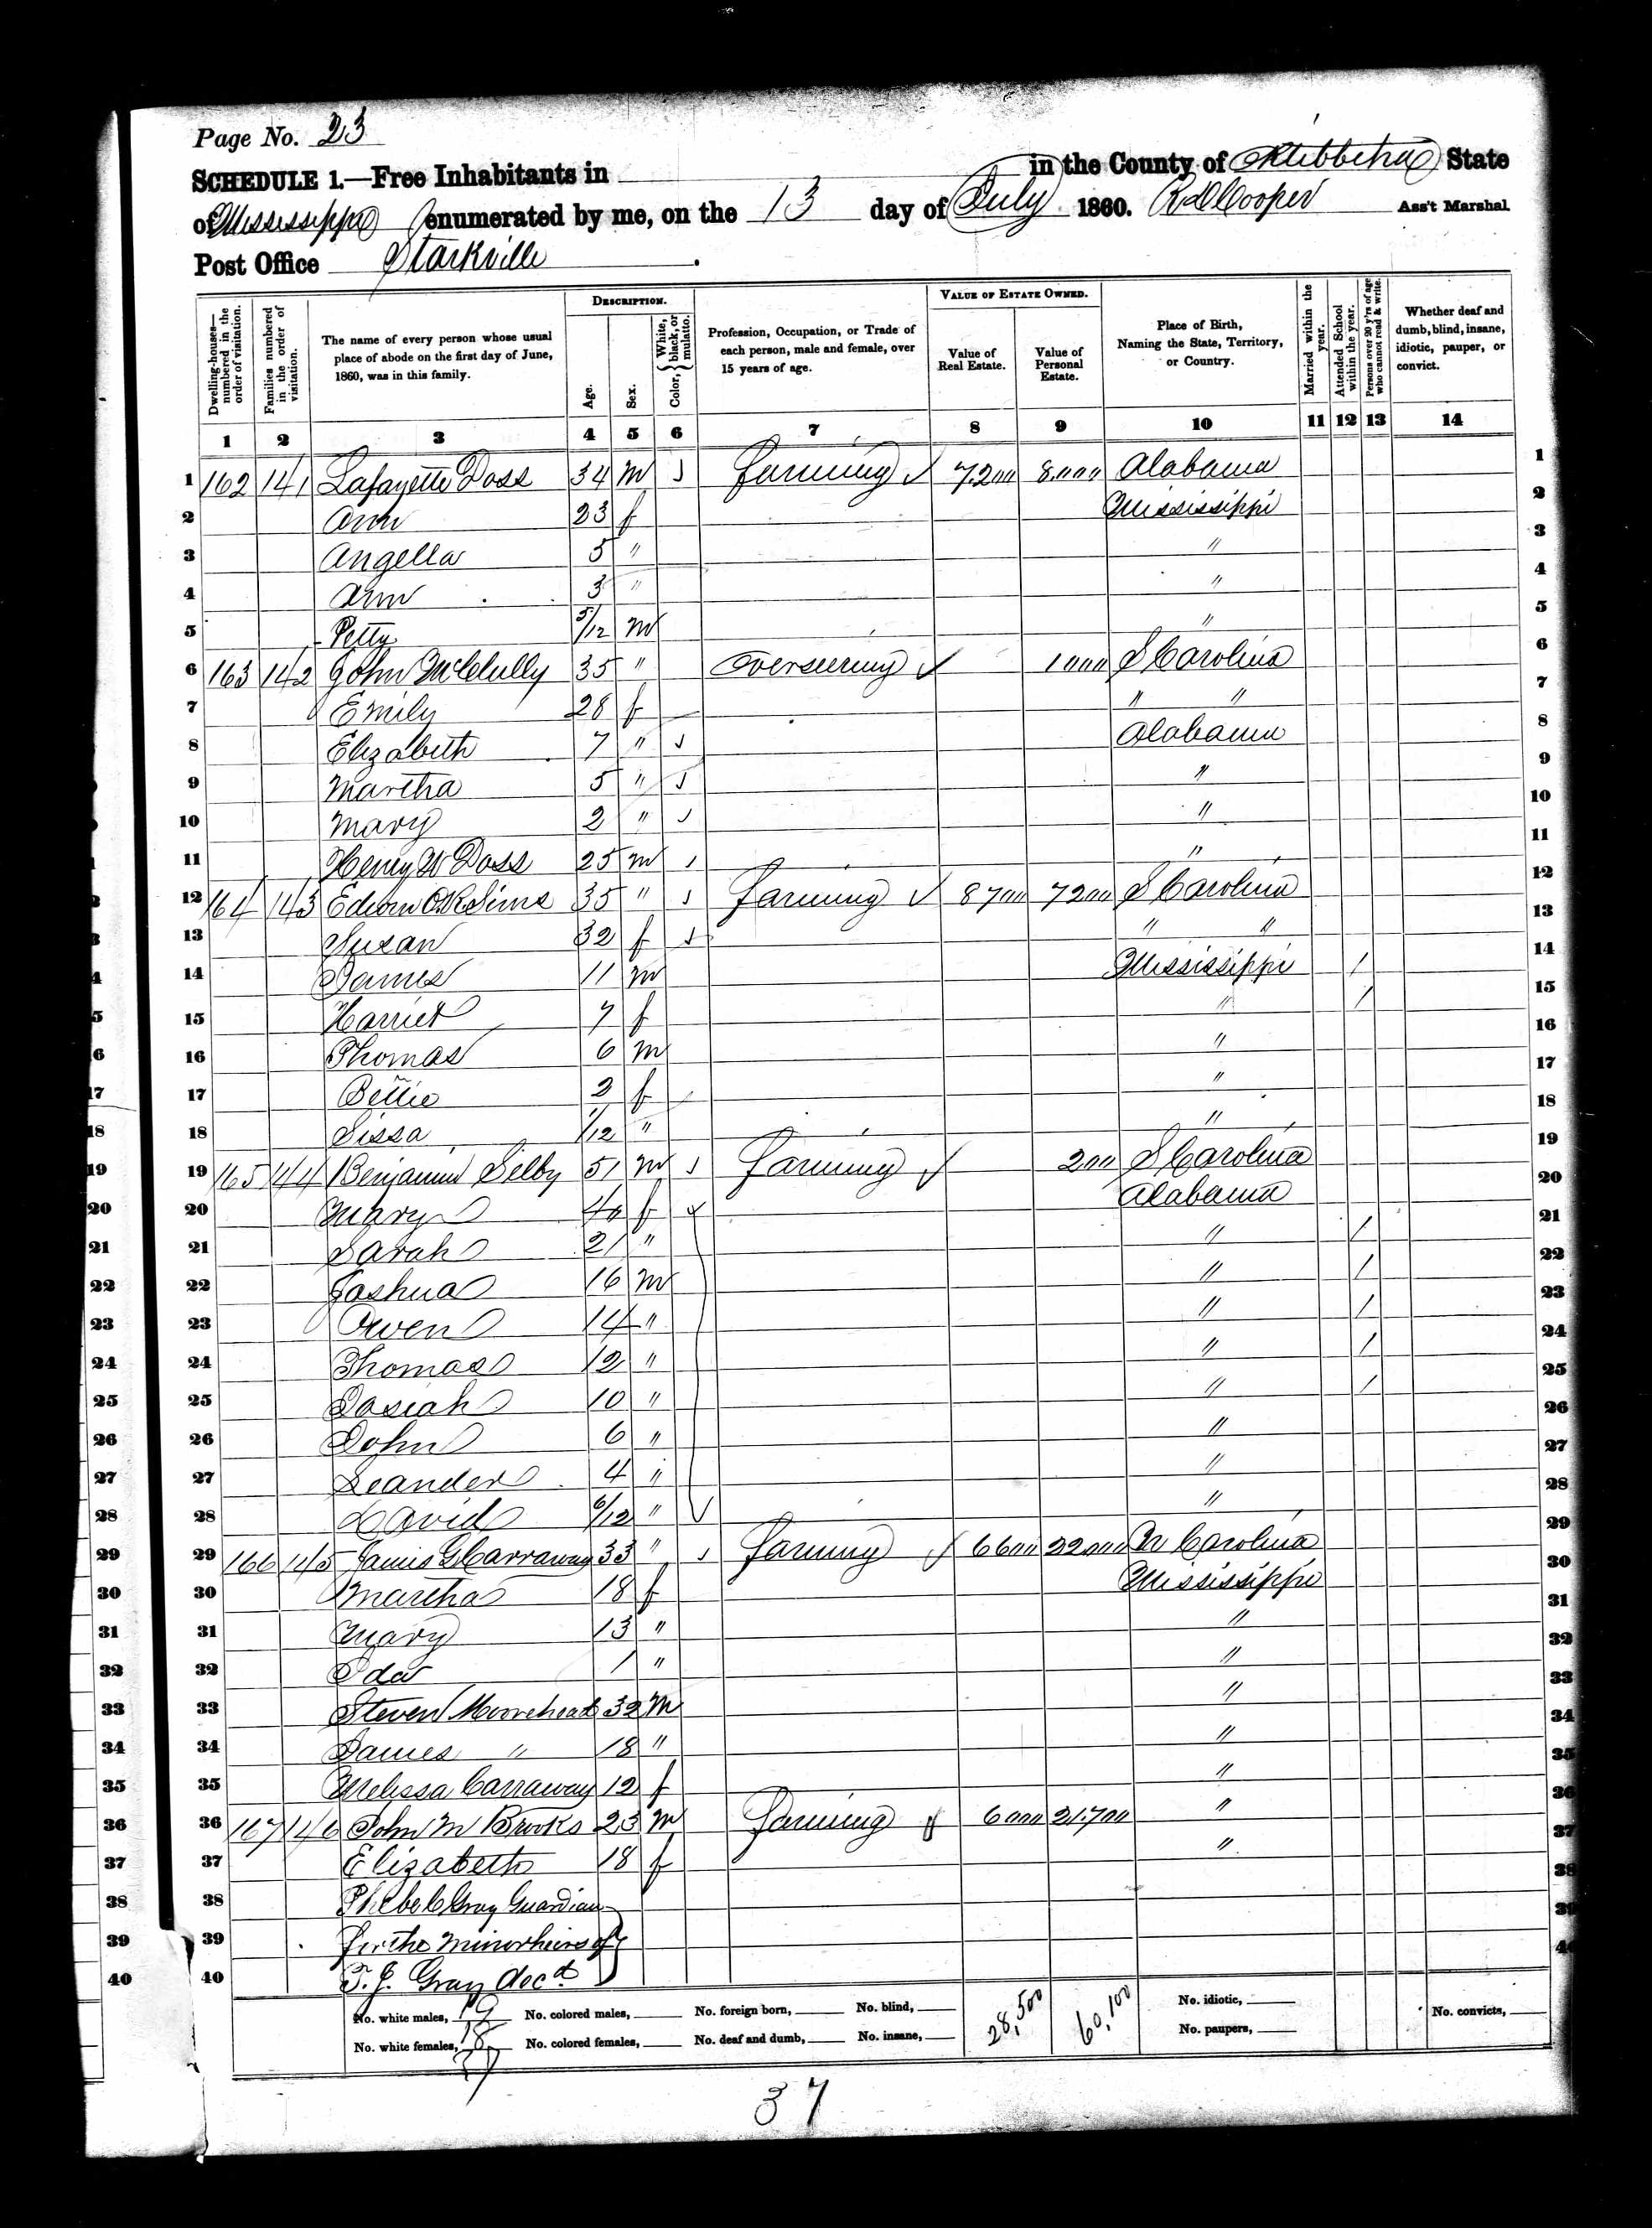 Page No. 23
SCHEDULE 1.—Free Inhabitants in in the County of Oktibbeha State
of Mississippi enumerated by me, on the 13 day of July 1860. Cooper Ass't Marshal.
Post Office Starkville.
Dwelling-houses—numbered in the order of visitation. Families numbered in the order of visitation. The name of every person whose usual place of abode on the first day of June, 1860, was in this family. DESCRIPTION. Age. Sex. Color, { White, black, or mulatto. Profession, Occupation, or Trade of each person, male and female, over 15 years of age. VALUE OF ESTATE OWNED. Value of Real Estate. Value of Personal Estate. Place of Birth, Naming the State, Territory, or Country. Married within the year. Attended School within the year. Persons over 20 y'rs of age who cannot read & write. Whether deaf and dumb, blind, insane, idiotic, pauper, or convict.
1 2 3 4 5 6 7 8 9 10 11 12 13 14
1 162 141 Lafayette Doss 34 m farming 7200 8000 Alabama 1
2 Ann 23 f Mississippi 2
3 Angella 5 " " 3
4 Ann 3 " " 4
5 Petty 5/12 m " 5
6 163 142 John McCully 35 " Overseering 1000 S Carolina 6
7 Emily 28 f " " 7
8 Elizabeth 7 " Alabama 8
9 Martha 5 " " 9
10 Mary 2 " " 10
11 Henry W Doss 25 m " 11
12 164 143 Sims 35 " farming 8700 7200 S Carolina 12
13 Susan 32 f " " 13
14 James 11 m Mississippi / 14
15 Harriet 7 f " / 15
16 Thomas 6 m " 16
17 Bettie 2 f " 17
18 Sissa 1/12 " " 18
19 165 144 Benjamin Selby 51 m farming 200 S Carolina 19
20 Mary 40 f Alabama 20
21 Sarah 21 " " / 21
22 Joshua 16 m " / 22
23 Owen 14 " " / 23
24 Thomas 12 " " / 24
25 Josiah 10 " " / 25
26 John 6 " " 26
27 Leander 4 " " 27
28 David 6/12 " " 28
29 166 145 James G Carraway 33 " farming 6600 22000 N Carolina 29
30 Martha 18 f Mississippi 30
31 Mary 13 " " 31
32 Ida 1 " " 32
33 Steven Moorehead 32 m " 33
34 James " 18 " " 34
35 Melissa Carraway 12 f " 35
36 167 146 John M Brooks 23 m farming 6000 21700 " 36
37 Elizabeth 18 f " 37
38 Phebe C Gray Guardian 38
39 for the minor heirs of 39
40 T. J. Gray decd 40
No. white males, 19 No. colored males, No. foreign born, No. blind, 28,500 60,100 No. idiotic, No. convicts,
No. white females, 18 No. colored females, No. deaf and dumb, No. insane, No. paupers,
37
37